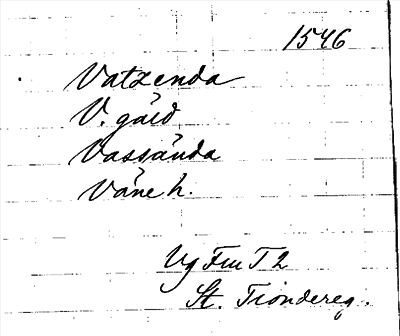 1546
Vatzenda
V. gård
Vassända
Väne h.
Vg Fm T 2
St. Tiondereg.